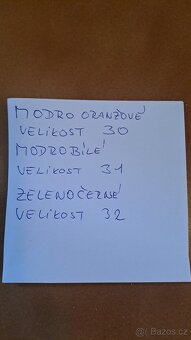 MODRO ORANŽOVÉ
VELIKOST 30
MODROBÍLÉ
VELIKOST 31
ZELENOČERNÉ
VELIKOST 32
Bazoš.cz